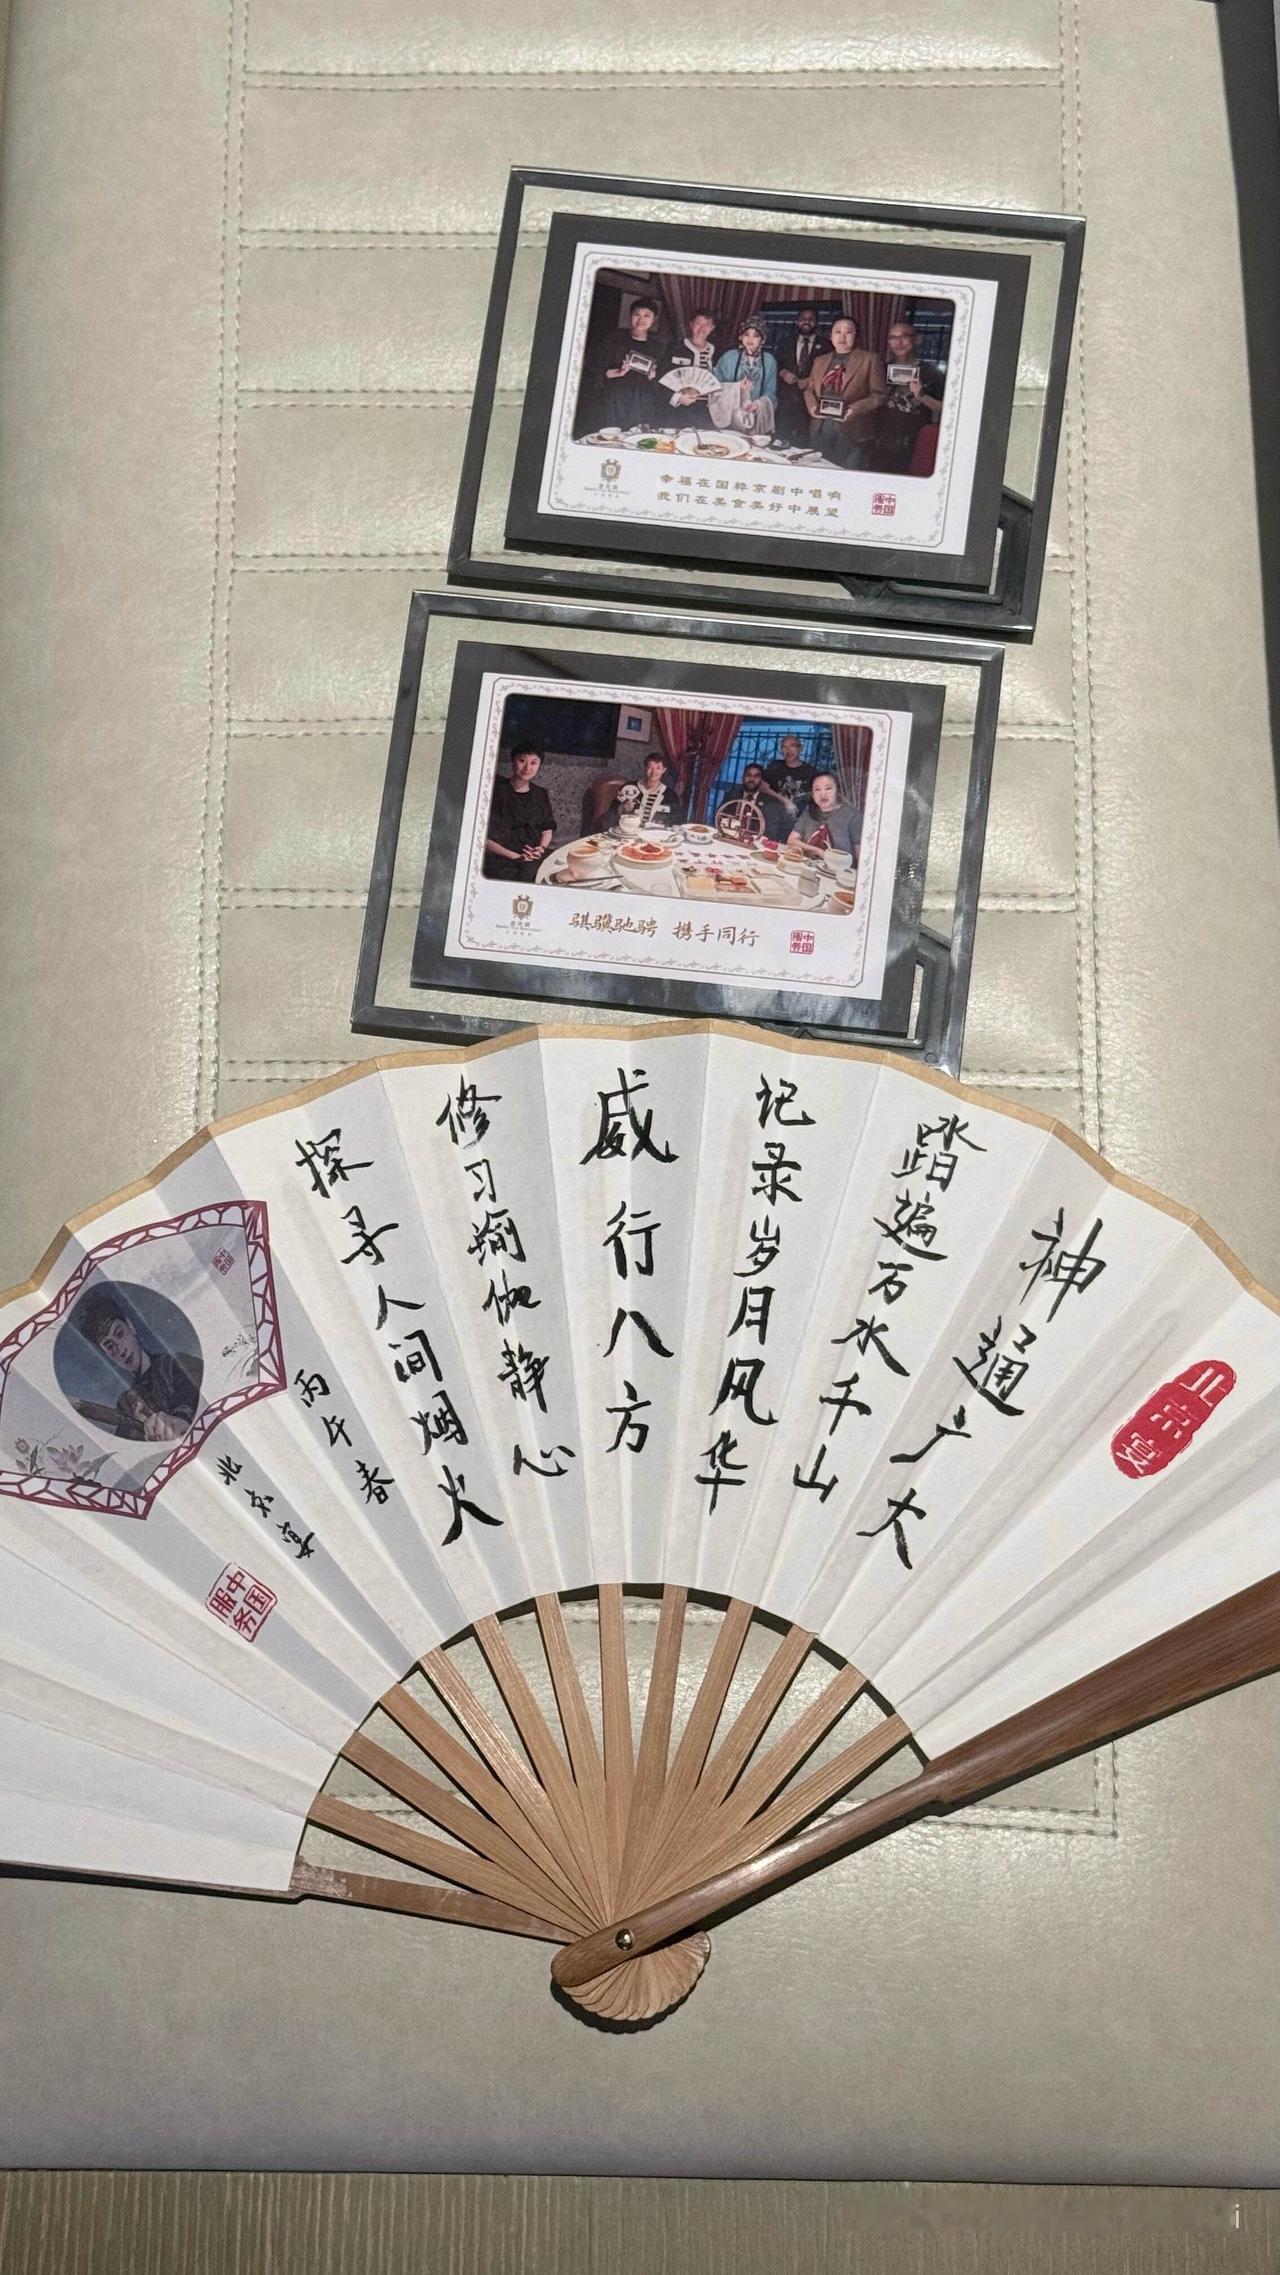 幸福在国粹京剧中唱响
我们在美食美好中展望
中国服务
骐骥驰骋 携手同行
中国服务
神通广大
踏遍万水千山
记录岁月风华
威行八方
修习瑜伽静心
探寻人间烟火
丙午春
北京宴
中国服务